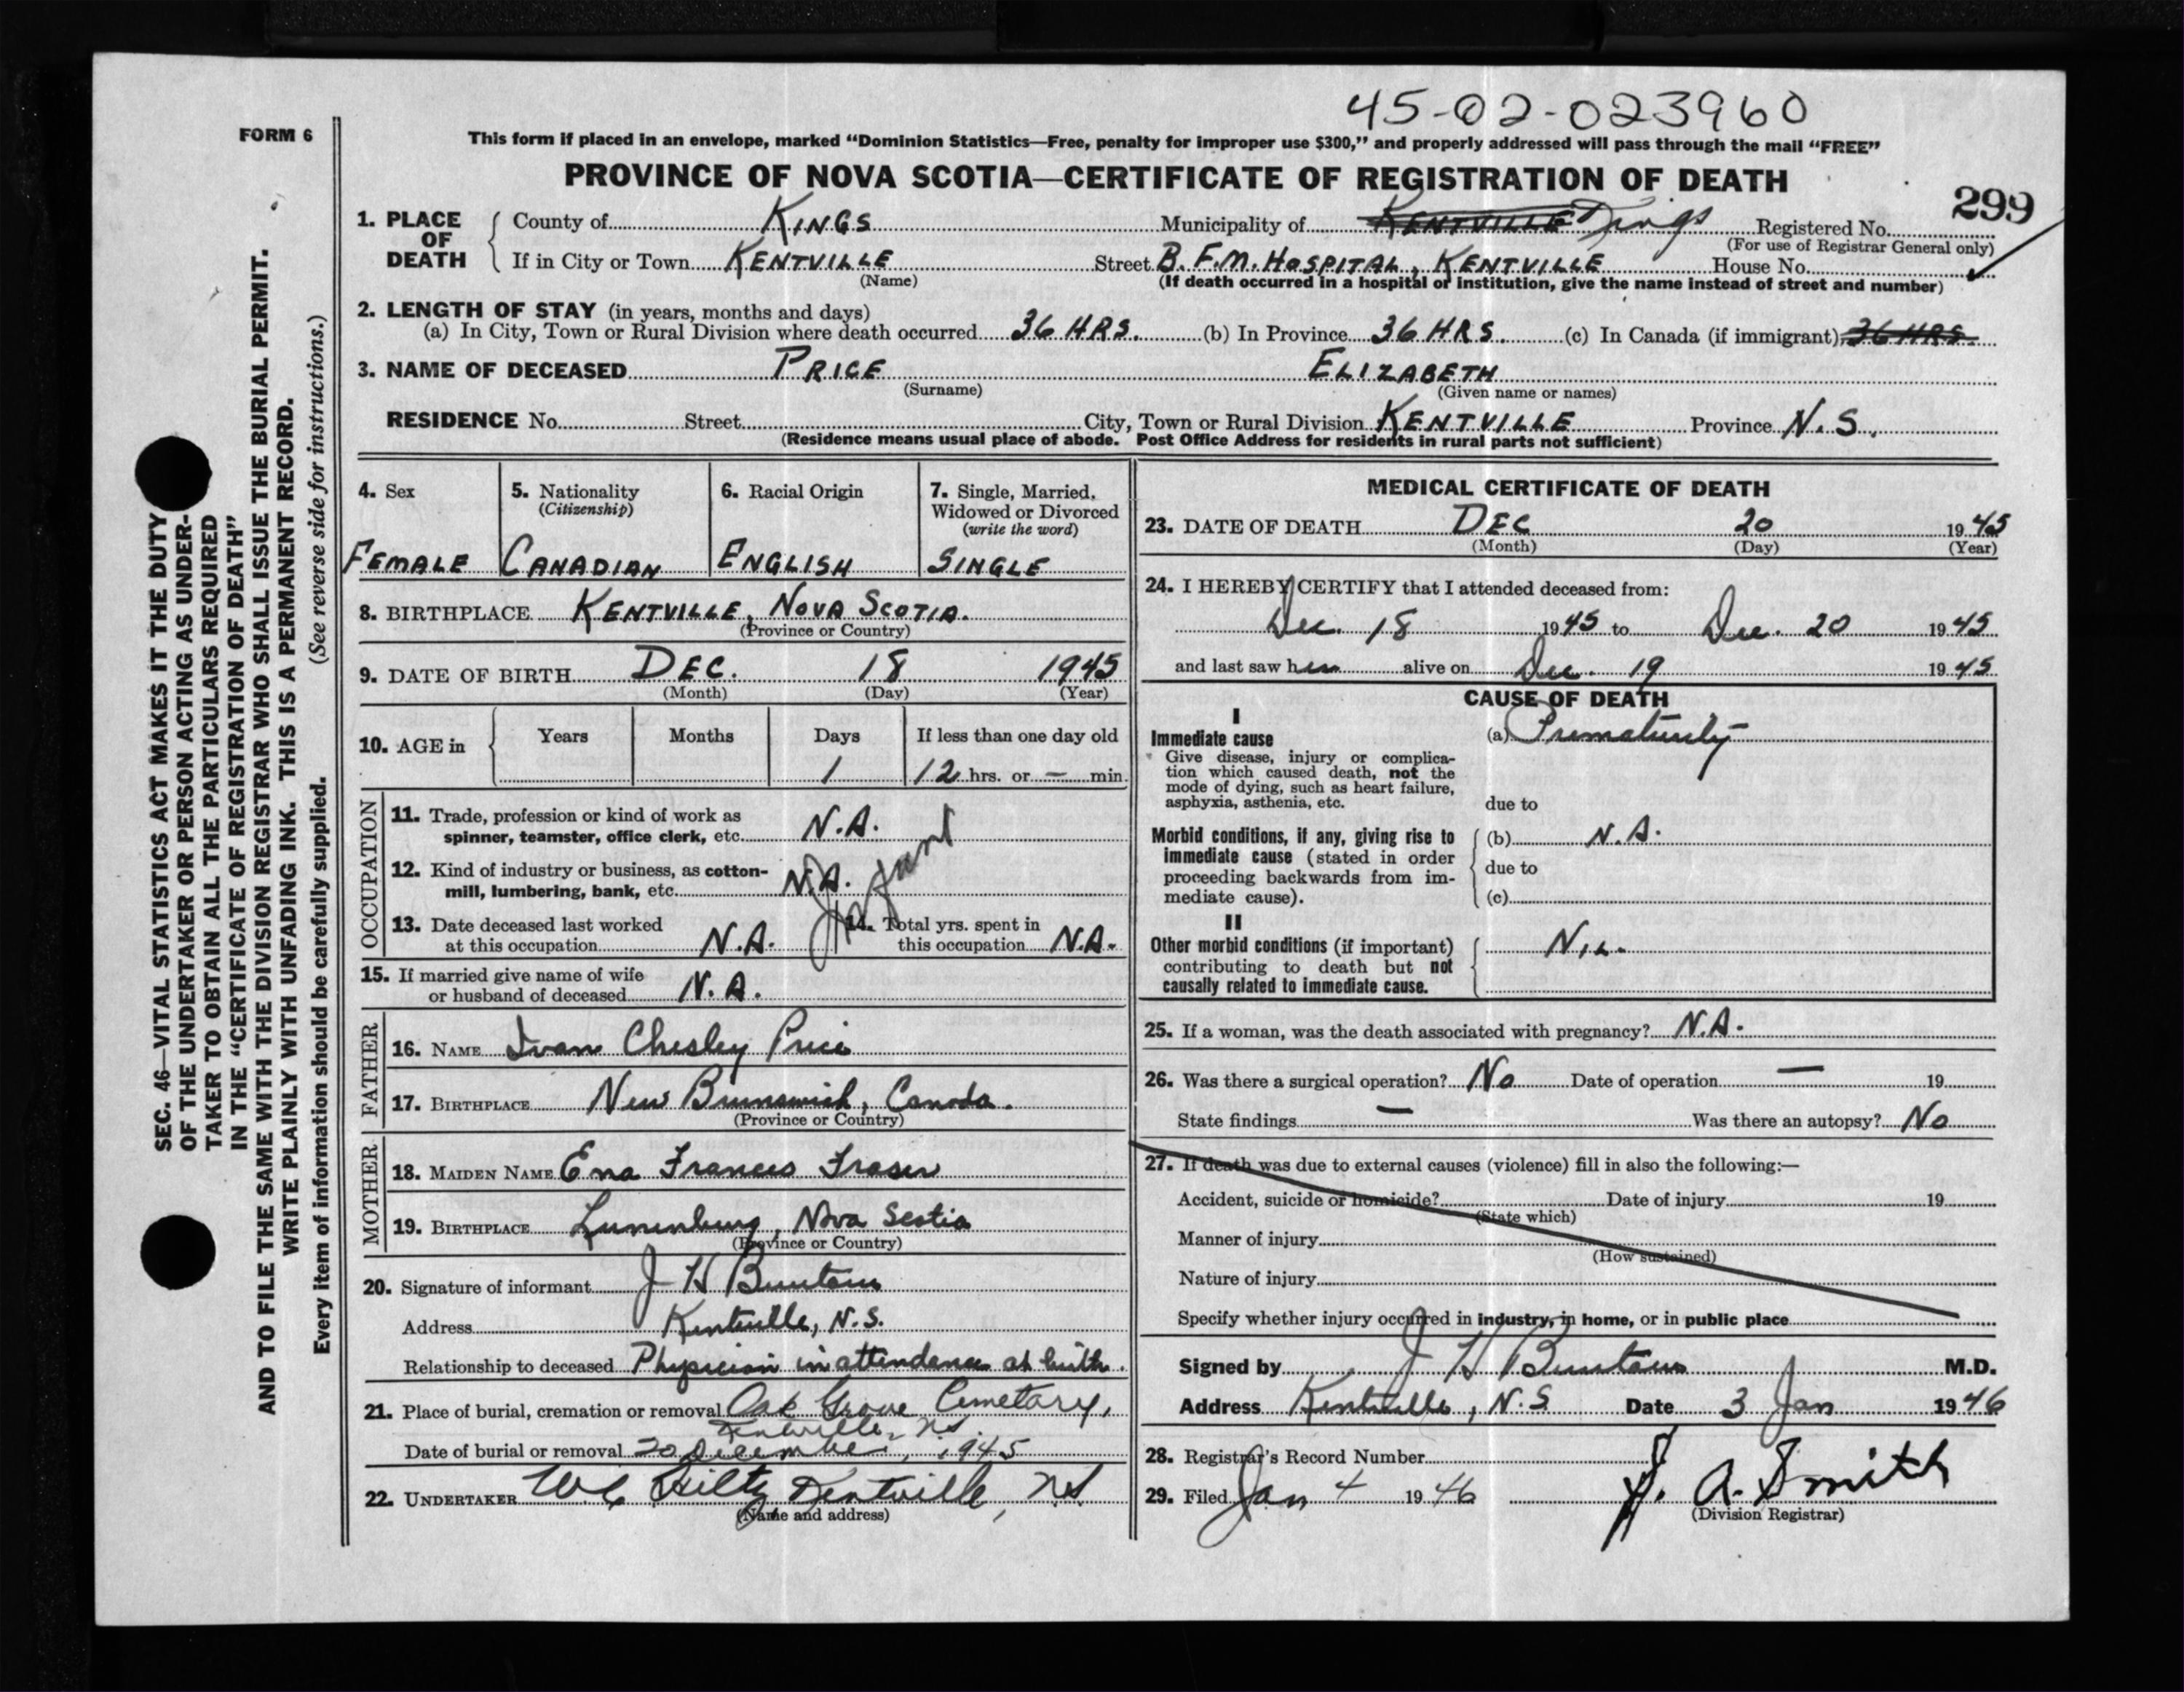 45-02-023960
FORM 6
This form if placed in an envelope, marked "Dominion Statistics—Free, penalty for improper use $300," and properly addressed will pass through the mail "FREE"
PROVINCE OF NOVA SCOTIA—CERTIFICATE OF REGISTRATION OF DEATH
299
1. PLACE OF DEATH County of KINGS Municipality of KENTVILLE Kings Registered No.
(For use of Registrar General only)
If in City or Town KENTVILLE Street B.F.M. HOSPITAL, KENTVILLE House No.
(Name) (If death occurred in a hospital or institution, give the name instead of street and number)
2. LENGTH OF STAY (in years, months and days)
(a) In City, Town or Rural Division where death occurred 36 HRS. (b) In Province 36 HRS. (c) In Canada (if immigrant) 36 HRS.
3. NAME OF DECEASED PRICE ELIZABETH
(Surname) (Given name or names)
RESIDENCE No. Street City, Town or Rural Division KENTVILLE Province N.S.
(Residence means usual place of abode. Post Office Address for residents in rural parts not sufficient)
4. Sex 5. Nationality (Citizenship) 6. Racial Origin 7. Single, Married, Widowed or Divorced (write the word)
FEMALE CANADIAN ENGLISH SINGLE
8. BIRTHPLACE KENTVILLE, NOVA SCOTIA.
(Province or Country)
9. DATE OF BIRTH DEC. 18 1945
(Month) (Day) (Year)
10. AGE in Years Months Days If less than one day old
1 12 hrs. or — min.
OCCUPATION
11. Trade, profession or kind of work as
spinner, teamster, office clerk, etc. N.A.
12. Kind of industry or business, as cotton-
mill, lumbering, bank, etc. N.A.
Infant
13. Date deceased last worked
at this occupation N.A.
14. Total yrs. spent in
this occupation N.A.
15. If married give name of wife
or husband of deceased N.A.
FATHER
16. NAME Ivan Chesley Price
17. BIRTHPLACE New Brunswick, Canada.
(Province or Country)
MOTHER
18. MAIDEN NAME Ena Frances Fraser
19. BIRTHPLACE Lunenburg, Nova Scotia
(Province or Country)
20. Signature of informant J H Buntain
Address Kentville, N.S.
Relationship to deceased Physician in attendance at birth.
21. Place of burial, cremation or removal Oak Grove Cemetary,
Kentville, N.S.
Date of burial or removal 20 December, 1945
22. UNDERTAKER W C Hiltz Kentville, N.S
(Name and address)
MEDICAL CERTIFICATE OF DEATH
23. DATE OF DEATH DEC 20 1945
(Month) (Day) (Year)
24. I HEREBY CERTIFY that I attended deceased from:
Dec. 18 1945 to Dec. 20 1945
and last saw her alive on Dec. 19 1945
CAUSE OF DEATH
I
Immediate cause (a) Prematurity
Give disease, injury or complica-
tion which caused death, not the
mode of dying, such as heart failure,
asphyxia, asthenia, etc. due to
Morbid conditions, if any, giving rise to (b) N.A.
immediate cause (stated in order
proceeding backwards from im- due to
mediate cause). (c)
II
Other morbid conditions (if important) NIL.
contributing to death but not
causally related to immediate cause.
25. If a woman, was the death associated with pregnancy? N.A.
26. Was there a surgical operation? No Date of operation — 19
State findings — Was there an autopsy? No
27. If death was due to external causes (violence) fill in also the following:—
Accident, suicide or homicide? Date of injury 19
(State which)
Manner of injury
(How sustained)
Nature of injury
Specify whether injury occurred in industry, in home, or in public place
Signed by J H Buntain M.D.
Address Kentville, N.S Date 3 Jan 1946
28. Registrar's Record Number
29. Filed Jan 4 1946 J. A. Smith
(Division Registrar)
SEC. 46—VITAL STATISTICS ACT MAKES IT THE DUTY
OF THE UNDERTAKER OR PERSON ACTING AS UNDER-
TAKER TO OBTAIN ALL THE PARTICULARS REQUIRED
IN THE "CERTIFICATE OF REGISTRATION OF DEATH"
AND TO FILE THE SAME WITH THE DIVISION REGISTRAR WHO SHALL ISSUE THE BURIAL PERMIT.
WRITE PLAINLY WITH UNFADING INK. THIS IS A PERMANENT RECORD.
Every item of information should be carefully supplied. (See reverse side for instructions.)